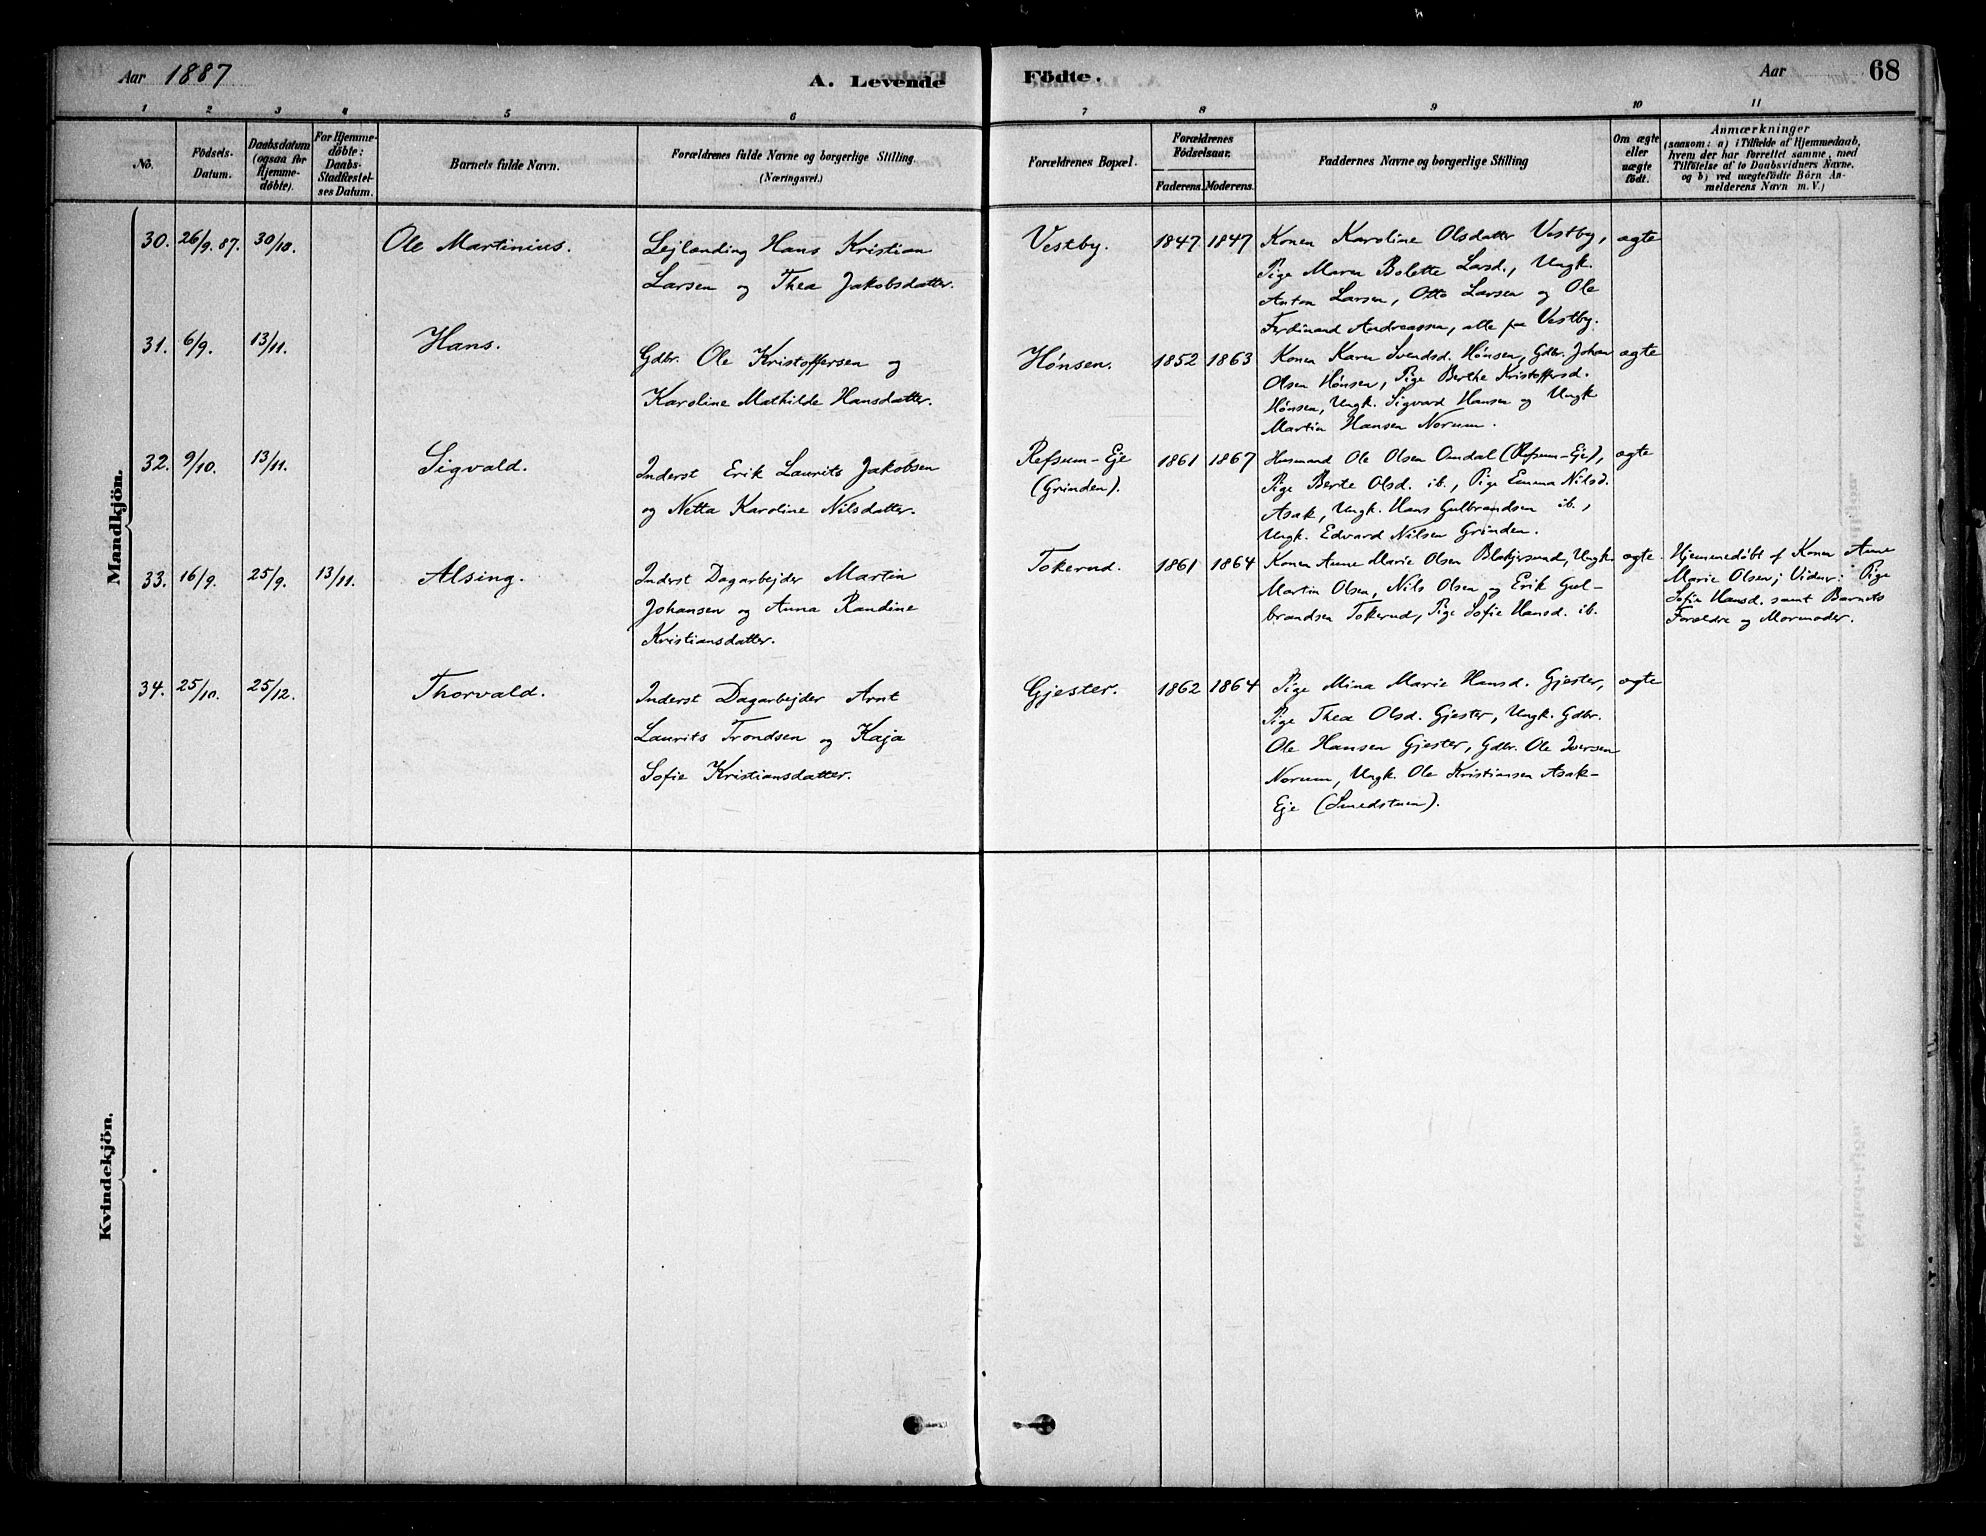 Aar 1887
A. Levende
Födte.
Aar
68
1 2 3 4 5 6 7 8 9 10 11
No.
Födsels-
Datum.
Daabsdatum
(ogsaa for
Hjemme-
döbte).
For Hjemme-
döbte:
Daabs-
Stadfæstel-
ses Datum.
Barnets fulde Navn.
Forældrenes fulde Navne og borgerlige Stilling.
(Næringsvei.)
Forældrenes Bopæl.
Forældrenes
Födselsaar.
Faderens. Moderens.
Faddernes Navne og borgerlige Stilling
Om ægte
eller
uægte
födt.
Anmærkninger
(saasom: a) i Tilfælde af Hjemmedaab,
hvem der har forrettet samme, med
Tilföielse af to Daabsvidners Navne,
og b) ved uægtefödte Börn An-
melderens Navn m. V.)
Mandkjön.
30. 26/9. 87. 30/10. Ole Martinius.
Lejlænding Hans Kristian
Larsen og Thea Jakobsdatter.
Vestby. 1847 1847
Konen Karoline Olsdatter Vestby,
Pige Maren Bolette Larsd., Ungk.
Anton Larsen, Otto Larsen og Ole
Ferdinand Andreassen, alle fra Vestby.
ægte
31. 6/9. 13/11. Hans.
Gdbr. Ole Kristoffersen og
Karoline Mathilde Hansdatter.
Hønsen. 1852 1863
Konen Karen Svendsd. Hønsen, Gdbr. Johan
Olsen Hønsen, Pige Berthe Kristoffersd.
Hønsen, Ungk. Sigvard Hansen og Ungk
Martin Hansen Norum.
ægte
32. 9/10. 13/11. Sigvald.
Inderst Erik Laurits Jakobsen
og Netta Karoline Nilsdatter.
Refsum-Eje
(Grinden).
1861 1867
Husmand Ole Olsen Omdal (Refsum-Eje),
Pige Berte Olsd. ib., Pige Emma Nilsd.
Asak, Ungk. Hans Gulbrandsen ib.,
Ungk. Edvard Nilsen Grinden.
ægte
33. 16/9. 25/9. 13/11. Alsing.
Inderst Dagarbejder Martin
Johansen og Anna Randine
Kristiansdatter.
Tokerud. 1861 1864
Konen Anne Marie Olsen Blakjersund, Ungk.
Martin Olsen, Nils Olsen og Erik Gul-
brandsen Tokerud, Pige Sofie Hansd. ib.
ægte
Hjemmedøbt af Konen Anne
Marie Olsen; Vidner: Pige
Sofie Hansd. samt Barnets
Forældre og Mormoder.
34. 25/10. 25/12. Thorvald.
Inderst Dagarbejder Arnt
Laurits Trondsen og Kaja
Sofie Kristiansdatter.
Gjester. 1862 1864
Pige Mina Marie Hansd. Gjester,
Pige Thea Olsd. Gjester, Ungk. Gdbr.
Ole Hansen Gjester, Gdbr. Ole Iversen
Norum, Ungk. Ole Kristiansen Asak-
Eje (Smedstuen).
ægte
Kvindekjön.